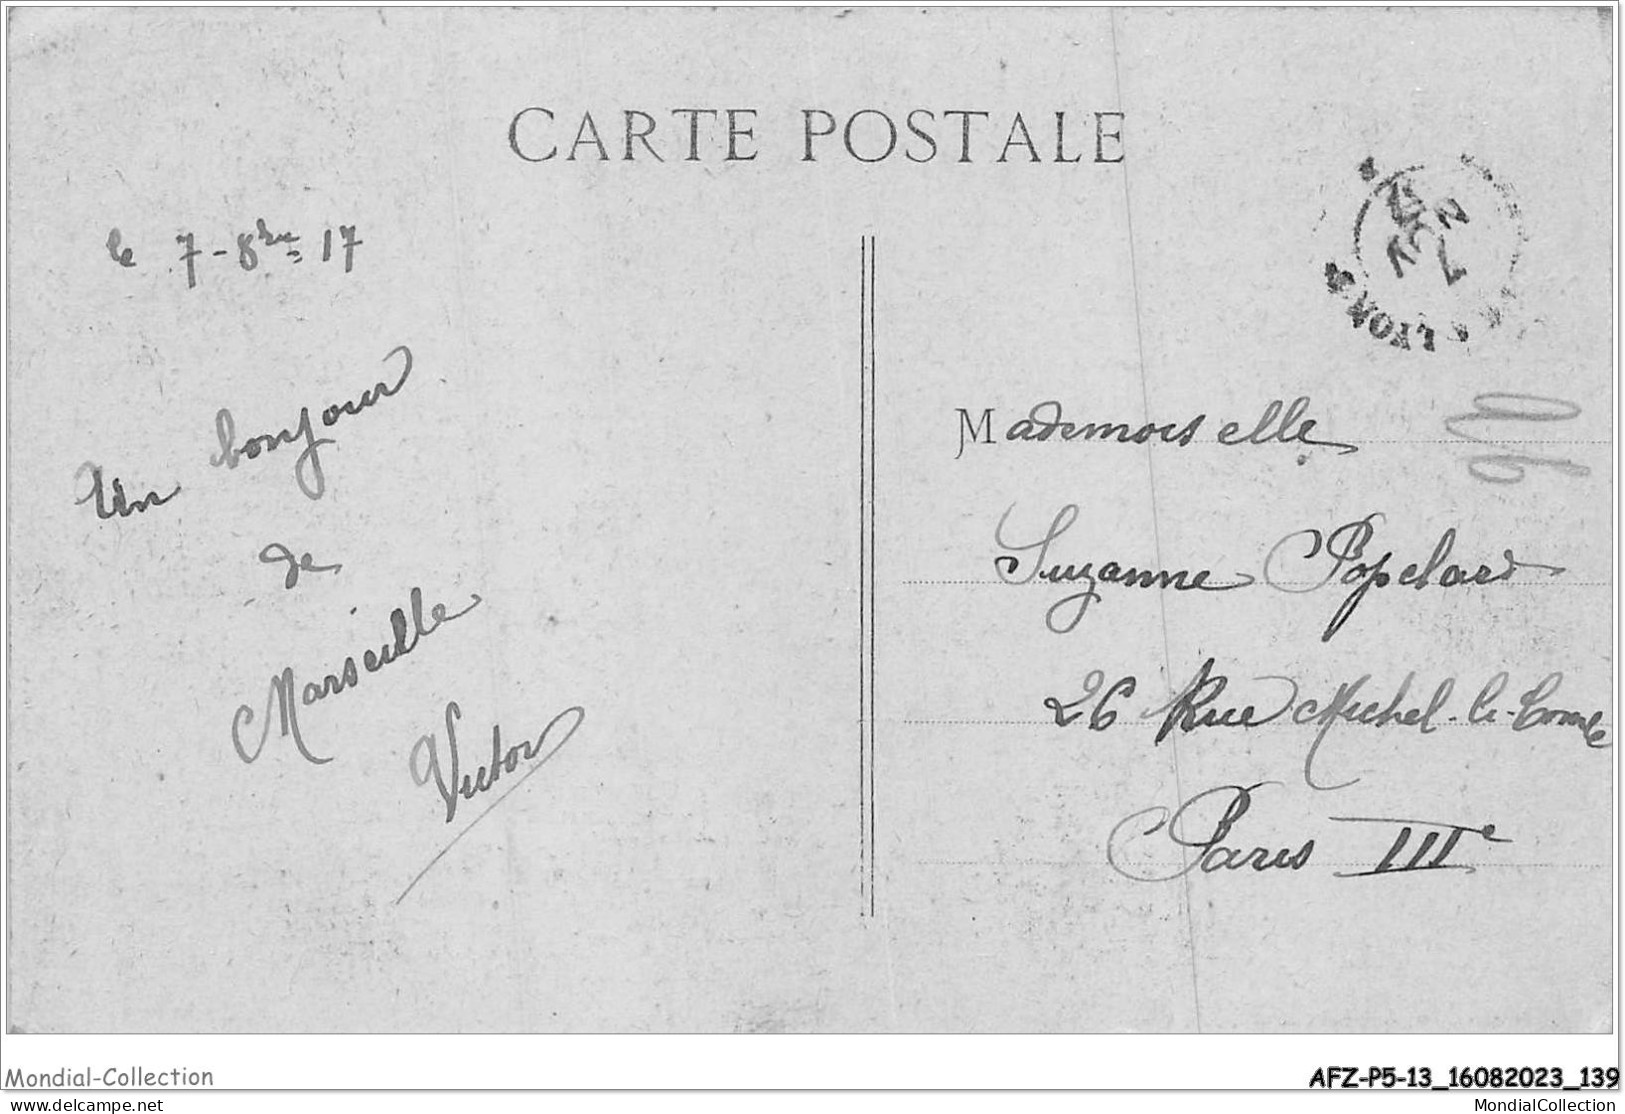 CARTE POSTALE
le 7-8bre 17
Un bonjour
de
Marseille
Victor
LYON
Mademoiselle
Suzanne Popelard
26 Rue Michel-le-Comte
Paris IIIe
Mondial-Collection
AFZ-P5-13_16082023_139
www.delcampe.net
MondialCollection